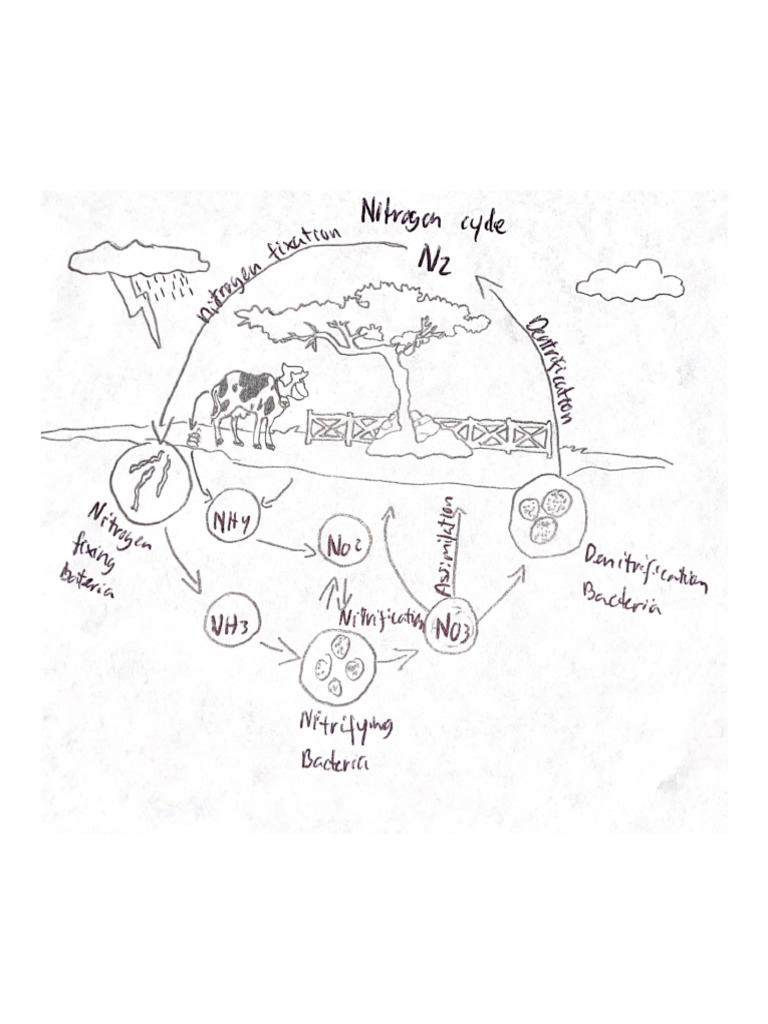 Nitrogen cycle
N2
Nitrogen fixation
Dentrification
Nitrogen
fixing
Bateria
NH4
NO2
Assimilation
Denitrification
Bacteria
NH3
Nitrification
NO3
Nitrifying
Bacteria